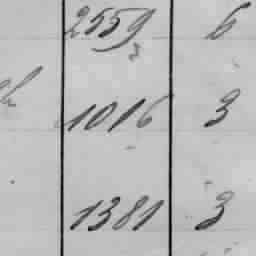 2559 6
1016 3
1381 3